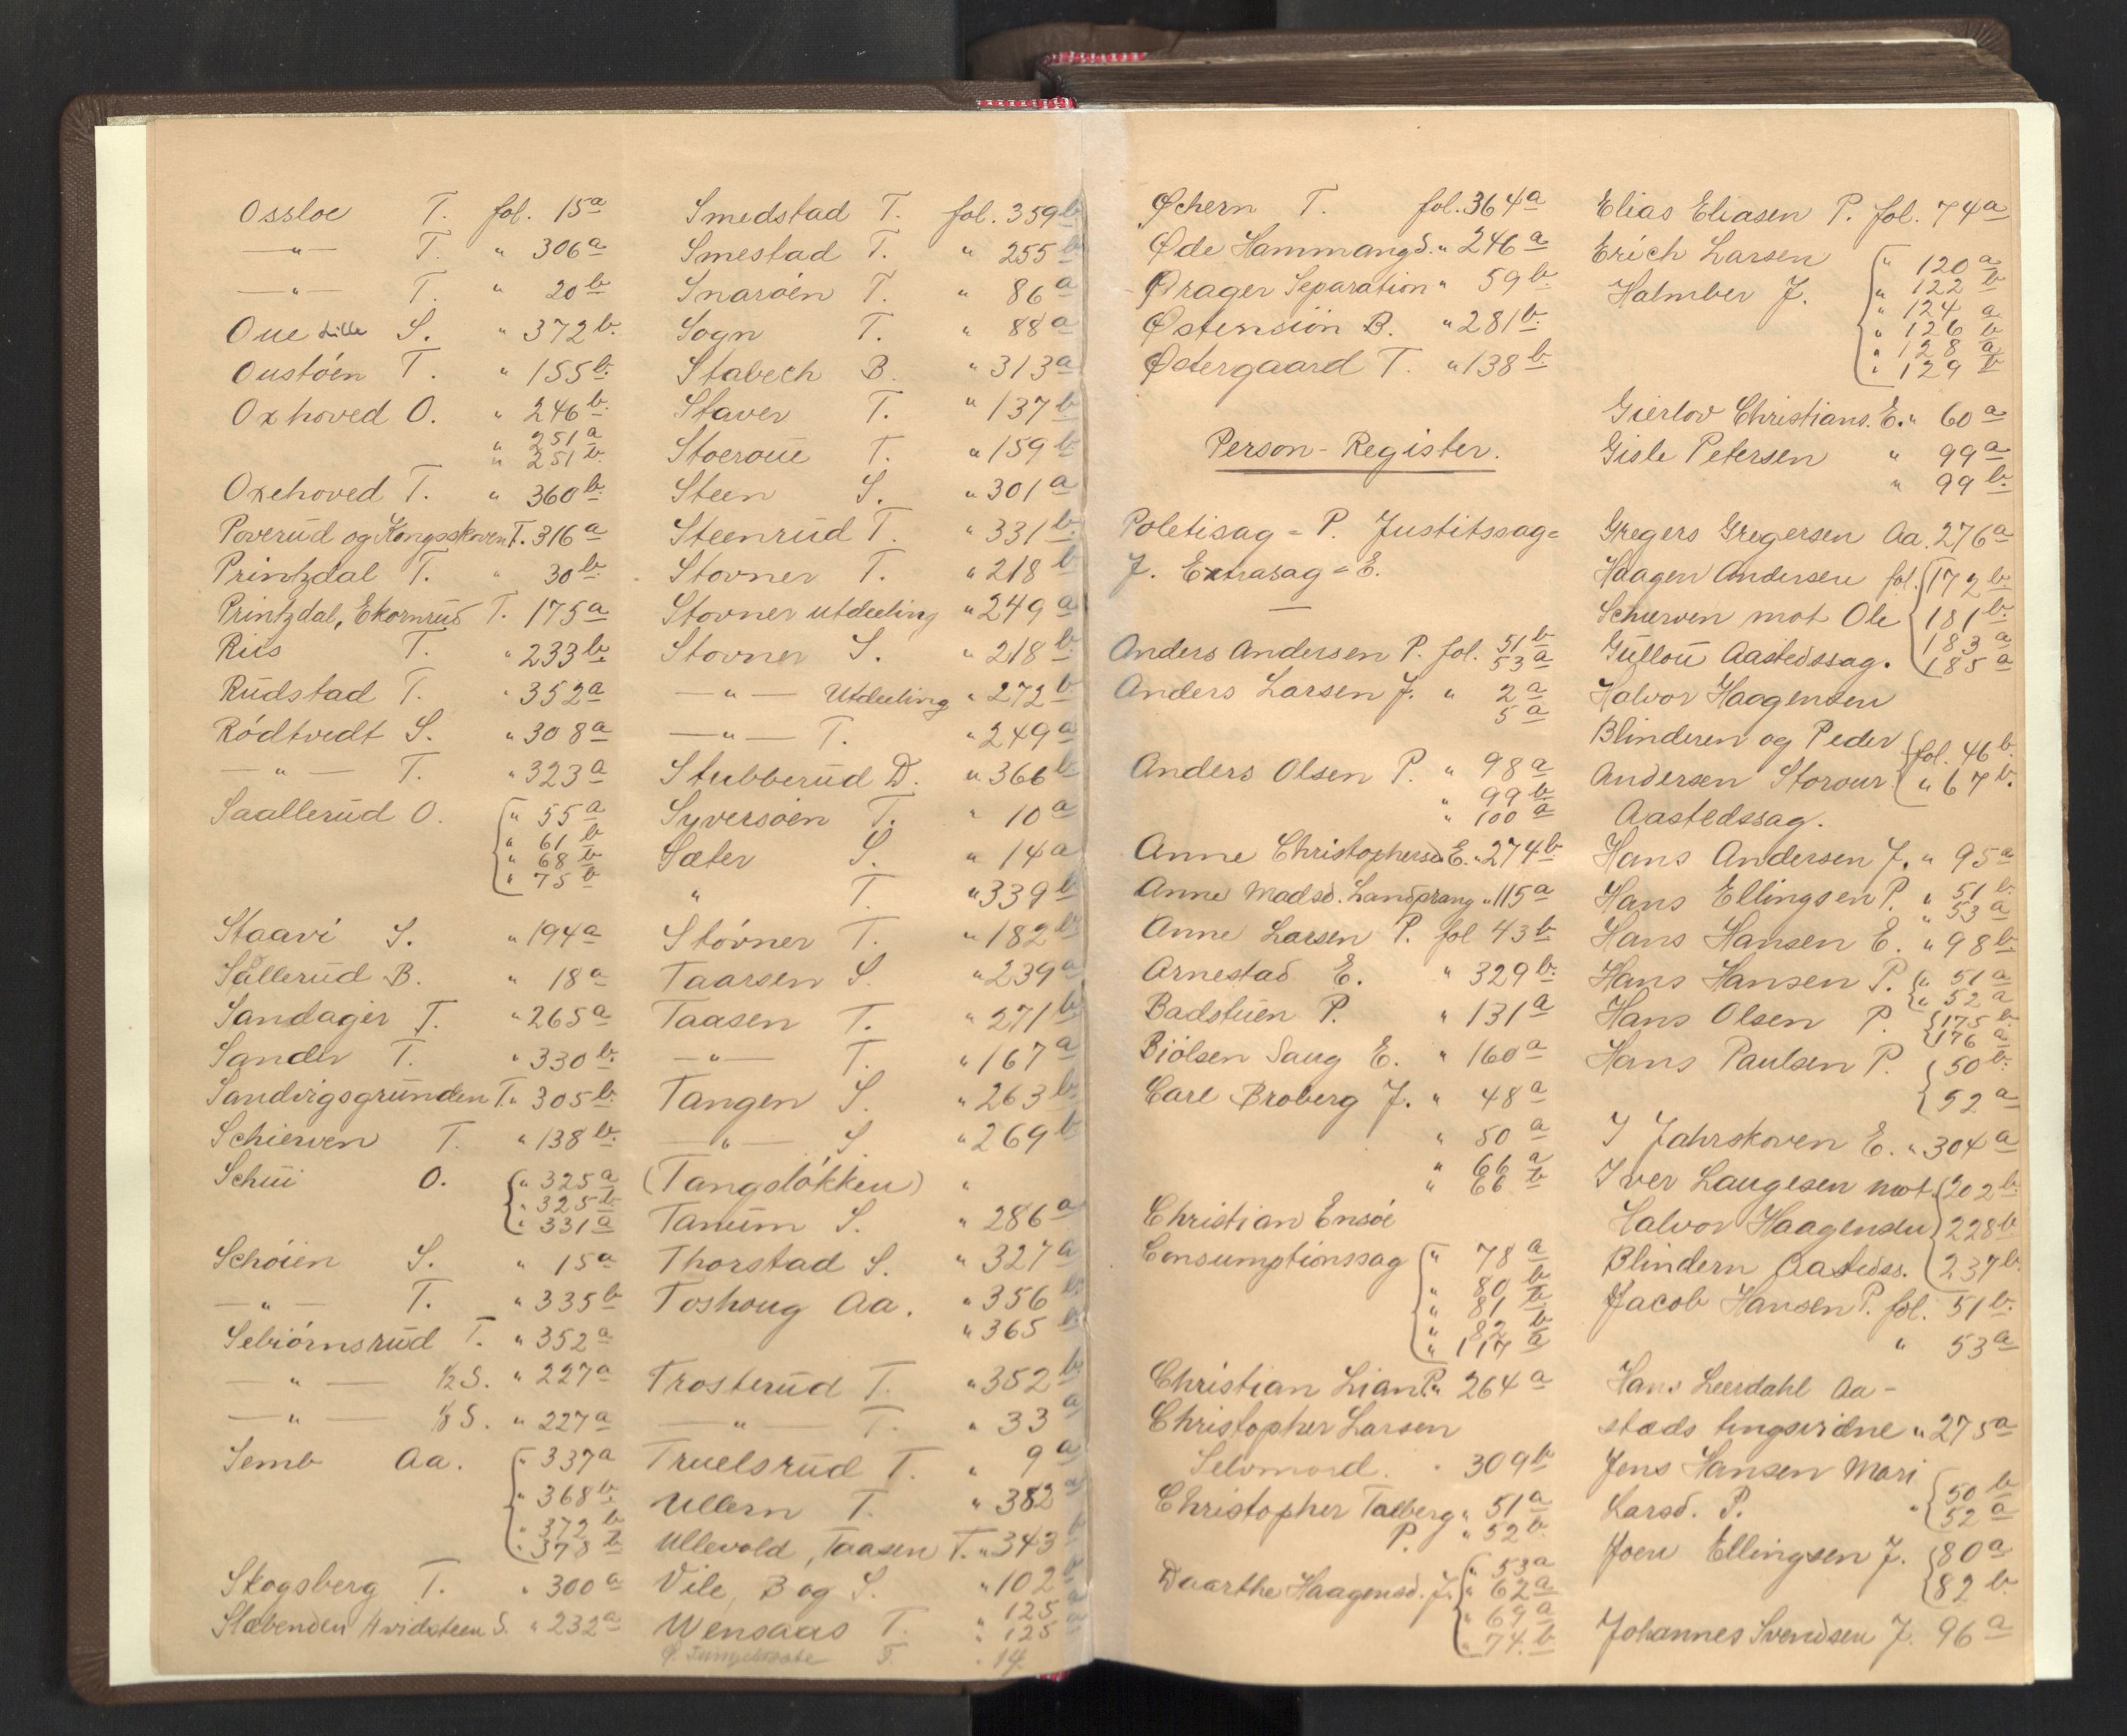 Ossloe T. fol. 15a
—"— T. " 306a
—"— T. " 20b
Oue Lille S. " 372b.
Oustöen T. " 155b.
Oxhoved O. " 246b.
" 251a
" 251b
Oxehoved T. " 360b.
Poverud og Kongsskoven T. 316a
Printzdal T. " 30b.
Printzdal, Ekornrud T. 175a
Riis T. " 233b.
Rudstad T. " 352a
Rödtvedt S. " 308a
—"— T. " 323a
Saallerud O. " 55a
" 61b
" 68b
" 75b
Staavi S. " 194a
Sallerud B. " 18a
Sandager T. " 265a
Sander T. " 330b.
Sandvigsgrunden T. " 305b.
Schierven T. " 138b.
Schui O. " 325a
" 325b
" 331a
Schöien S. " 15a
—"— T. " 335b
Sebiörnsrud T. " 352a
—"— 1/2 S. " 227a
—"— 1/8 S. " 227a
Semb Aa. " 337a
" 368b.
" 372b
" 378b
Skogsberg T. " 300a
Slæbenden Hvidsteen S. " 232a
Smedstad T. fol. 359b
Smestad T. " 255b
Snaröen T. " 86a
Sogn T. " 88a
Stabech B. " 313a
Staver T. " 137b
Stoeroue T. " 159b
Steen S. " 301a
Steenrud T. " 331b.
Stovner T. " 218b
Stovner utdeeling " 249a
Stovner S. " 218b.
—"— Utdeeling " 272b.
—"— T. " 249a
Stubberud D. " 366b
Syversöen T. " 10a
Sæter S. " 14a
" T. " 339b
Stövner T. " 182b
Taarsen S. " 239a
Taasen T. " 271b
—"— T. " 167a
Tangen S. " 263b.
—"— S. " 269b
(Tangslökken) "
Tanum S. " 286a
Thorstad S. " 327a
Toshoug Aa. " 356b.
" 365b
Trosterud T. " 352b
—"— T. " 33a
Truelsrud T. " 9a
Ullern T. " 382a
Ullevold, Taasen T. " 343b
Vile, B og S. " 102b
" 125a
Wensaas T. " 125a
T. " 14
Øchern T. fol. 364a
Øde Hammang S. " 246a
Ørager Separation " 59b.
Østensiön B. " 281b.
Østergaard T. " 138b.
Person-Register.
Poletisag = P. Justitssag =
J. Extrasag = E.
Anders Andersen P. fol. 51b
53a
Anders Larsen J. " 2a
5a
Anders Olsen P. " 98a
" 99b
" 100a
Anne Christophersd E. " 274b.
Anne Madsd. Landprang " 115a
Anne Larsen P. fol 43b
Arnestad E. " 329b.
Badstuen P. " 131a
Biölsen Saug E. " 160a
Carl Broberg J. " 48a
" 50a
" 66a
" 66b
Christian Ensöe
Consumptionssag " 78a
" 80b
" 81b
" 82b
" 117a
Christian Lian P. " 264a
Christopher Larsen
Selvmord. " 309b
Christopher Talberg " 51a
P. " 52b.
Daarthe Haagensd. J. " 53a
" 62a
" 69a
" 74b
Elias Eliasen P. fol. 74a
Erich Larsen " 120a
Halmber J. " 122b
" 124a
" 126b
" 128a
" 129b
Gierlov Christians. E. " 60a
Gisle Petersen " 99a
" 99b.
Gregers Gregersen Aa. 276a
Haagen Andersen fol. 172b.
Schierven mot Ole 181b.
Gullou Aastedssag. 183a
185a
Halvor Haagensen
Blinderen og Peder fol. 46b.
Andersen Storour " 67b.
Aastedssag.
Hans Andersen J. " 95a
Hans Ellingsen P. " 51b.
" 53a
Hans Hansen E. " 98b
Hans Hansen P. " 51a
" 52a
Hans Olsen P. 175b.
176a
Hans Paulsen P. 50b.
52a
I Jahrskoven E. " 304a
Iver Laugesen mot 202b.
Halvor Haagensen 228b
Blindern Aastedss. 237b.
Jacob Hansen P. fol. 51b.
" 53a
Hans Leerdahl Aa-
stæds tingsvidne " 275a
Jens Hansen Mari 50b
Larsd. P. " 52a
Joen Ellingsen J. 80a
82b.
Johannes Svendsen J. 96a